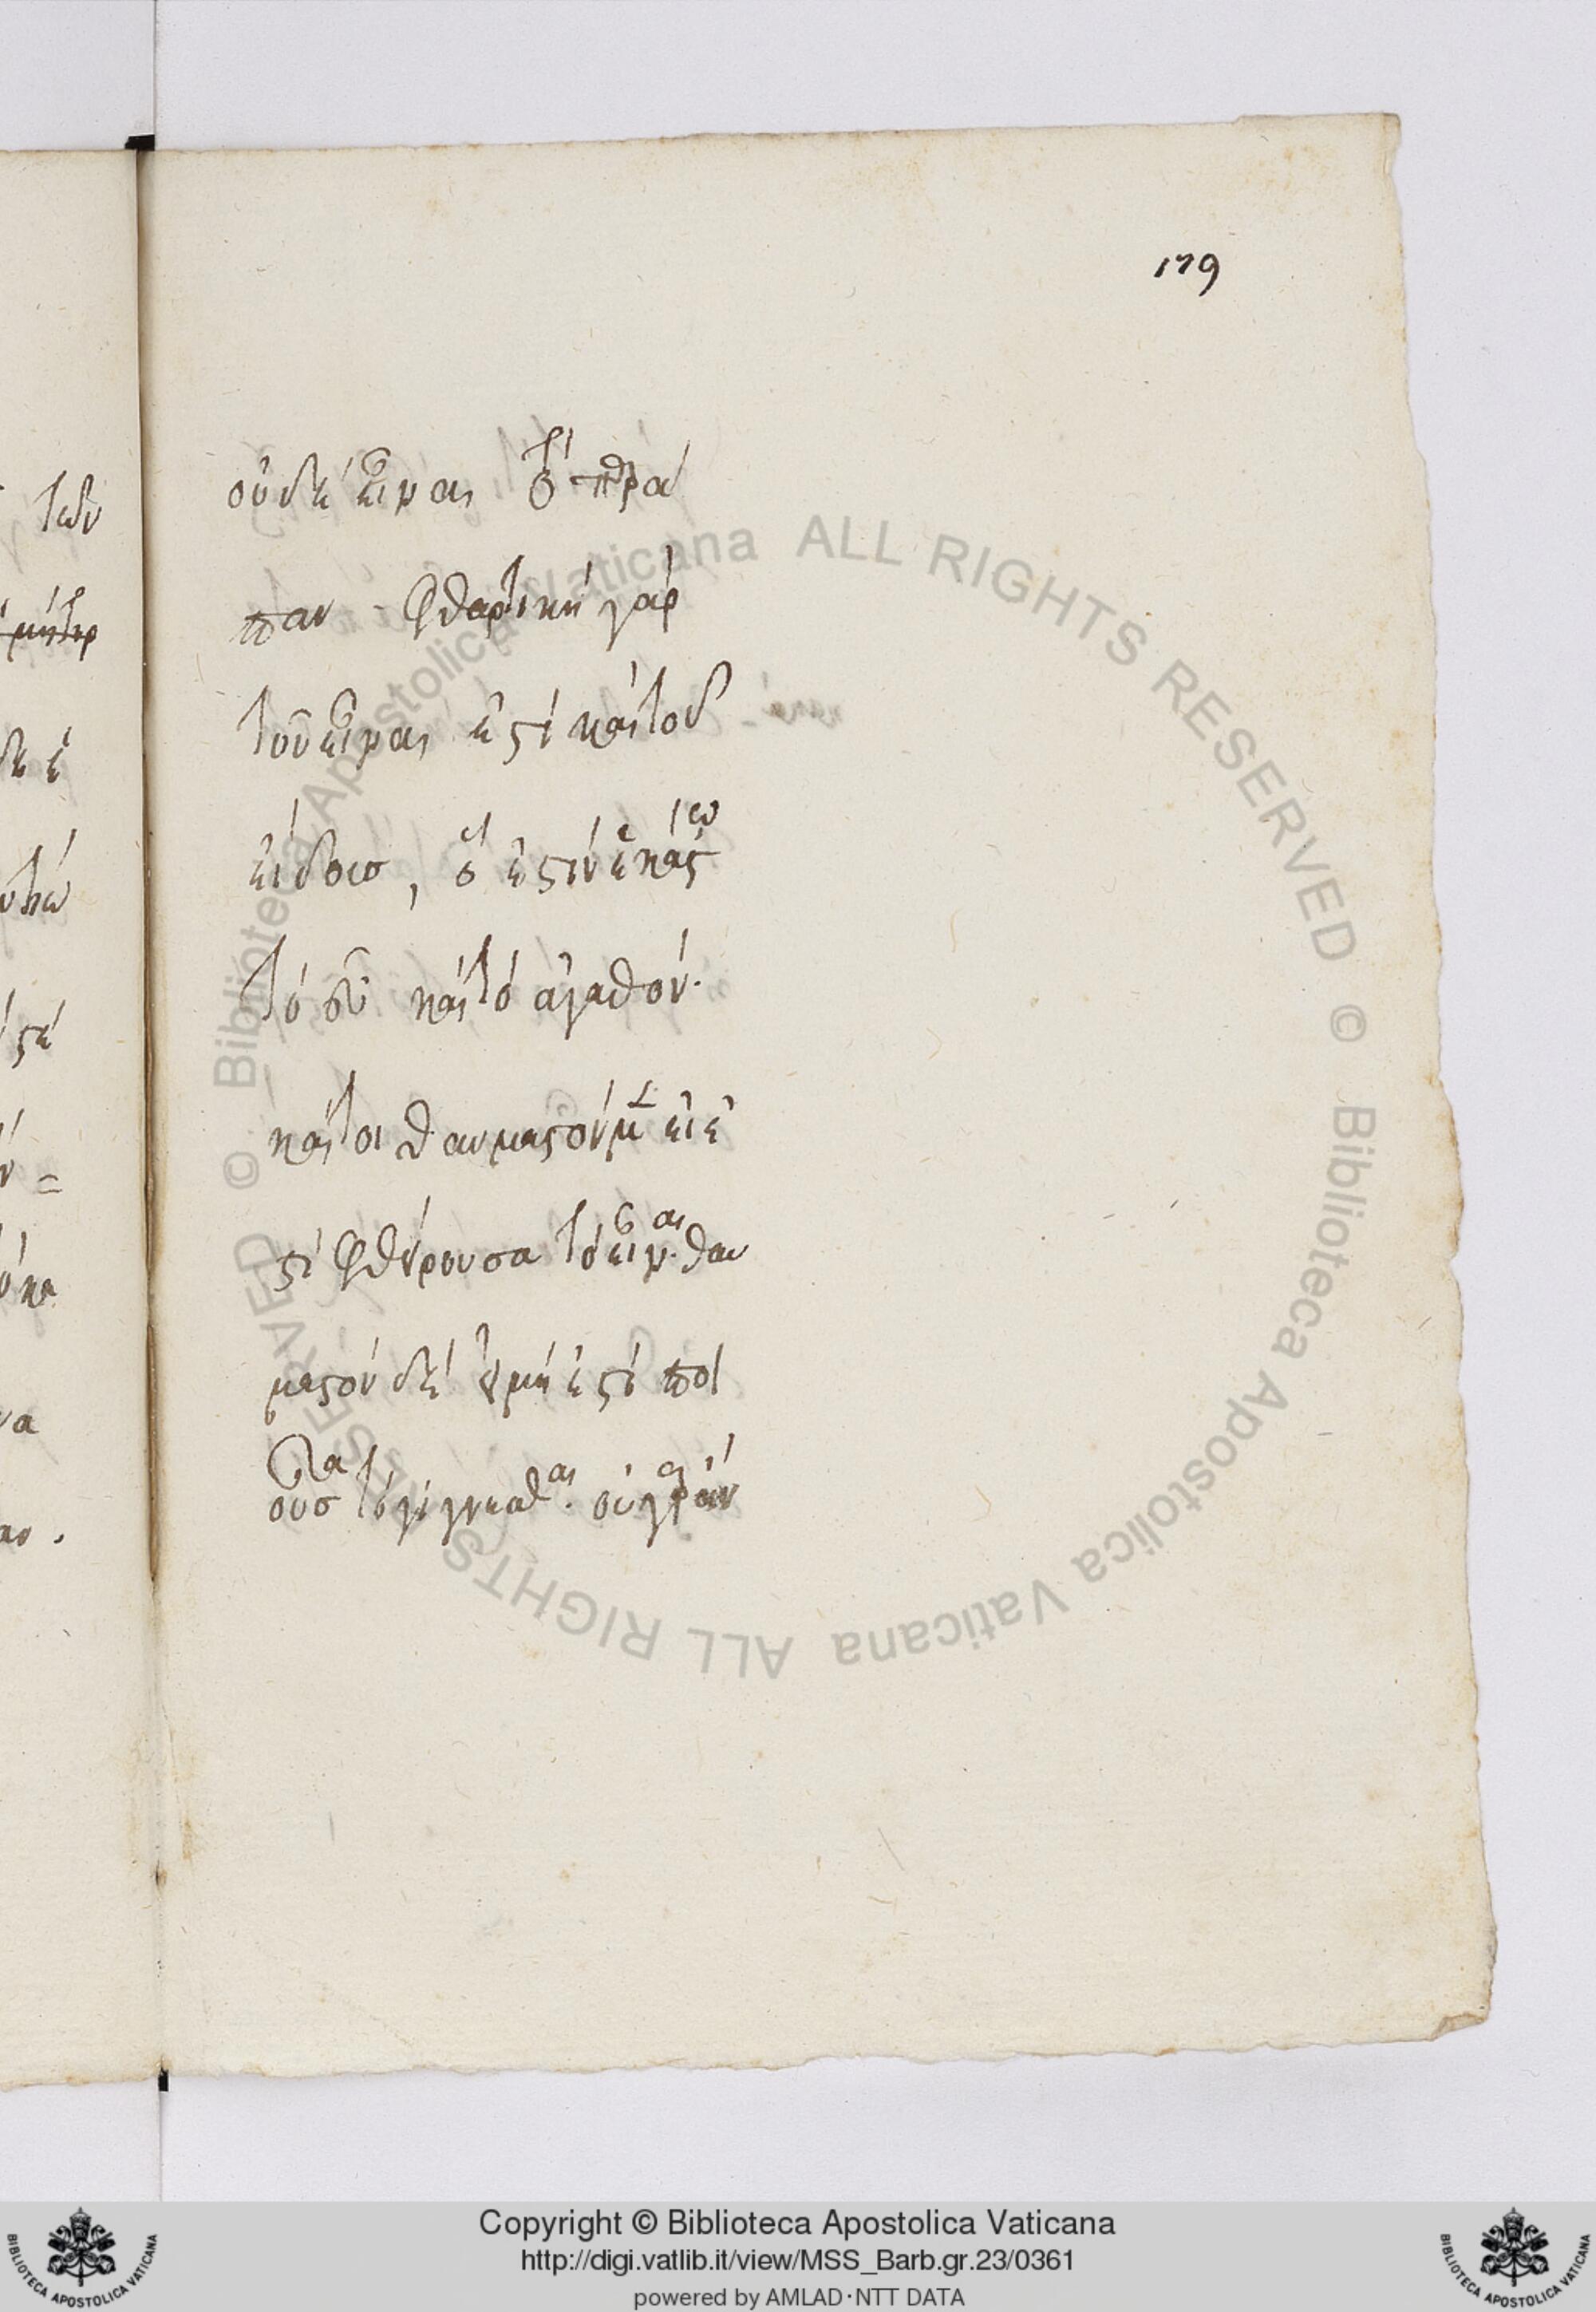 179
οὐδὲ εἶναι ὅτι παρά
παν φθαρτικὴ γάρ
τοῦ εἶναι ἐστὶ καὶ τοῦ
εἴδους, ὅ ἐστιν ἑκάστῳ
τὸ εὖ καὶ τὸ ἀγαθόν.
καίτοι θαυμαστὸν μὲν εἰ ἐ
στὶ φθείρουσα τὸ εἶναι. θαυ
μαστὸν δὲ εἰ μή ἐστι ποι
οῦσα τὸ γίγνεσθαι. οὐ γὰρ ἂν
τῶν
δὲ ἐ
να
Copyright © Biblioteca Apostolica Vaticana
http://digi.vatlib.it/view/MSS_Barb.gr.23/0361
powered by AMLAD·NTT DATA
© Biblioteca Apostolica Vaticana ALL RIGHTS RESERVED © Biblioteca Apostolica Vaticana ALL RIGHTS RESERVED
BIBLIOTECA APOSTOLICA VATICANA
BIBLIOTECA APOSTOLICA VATICANA